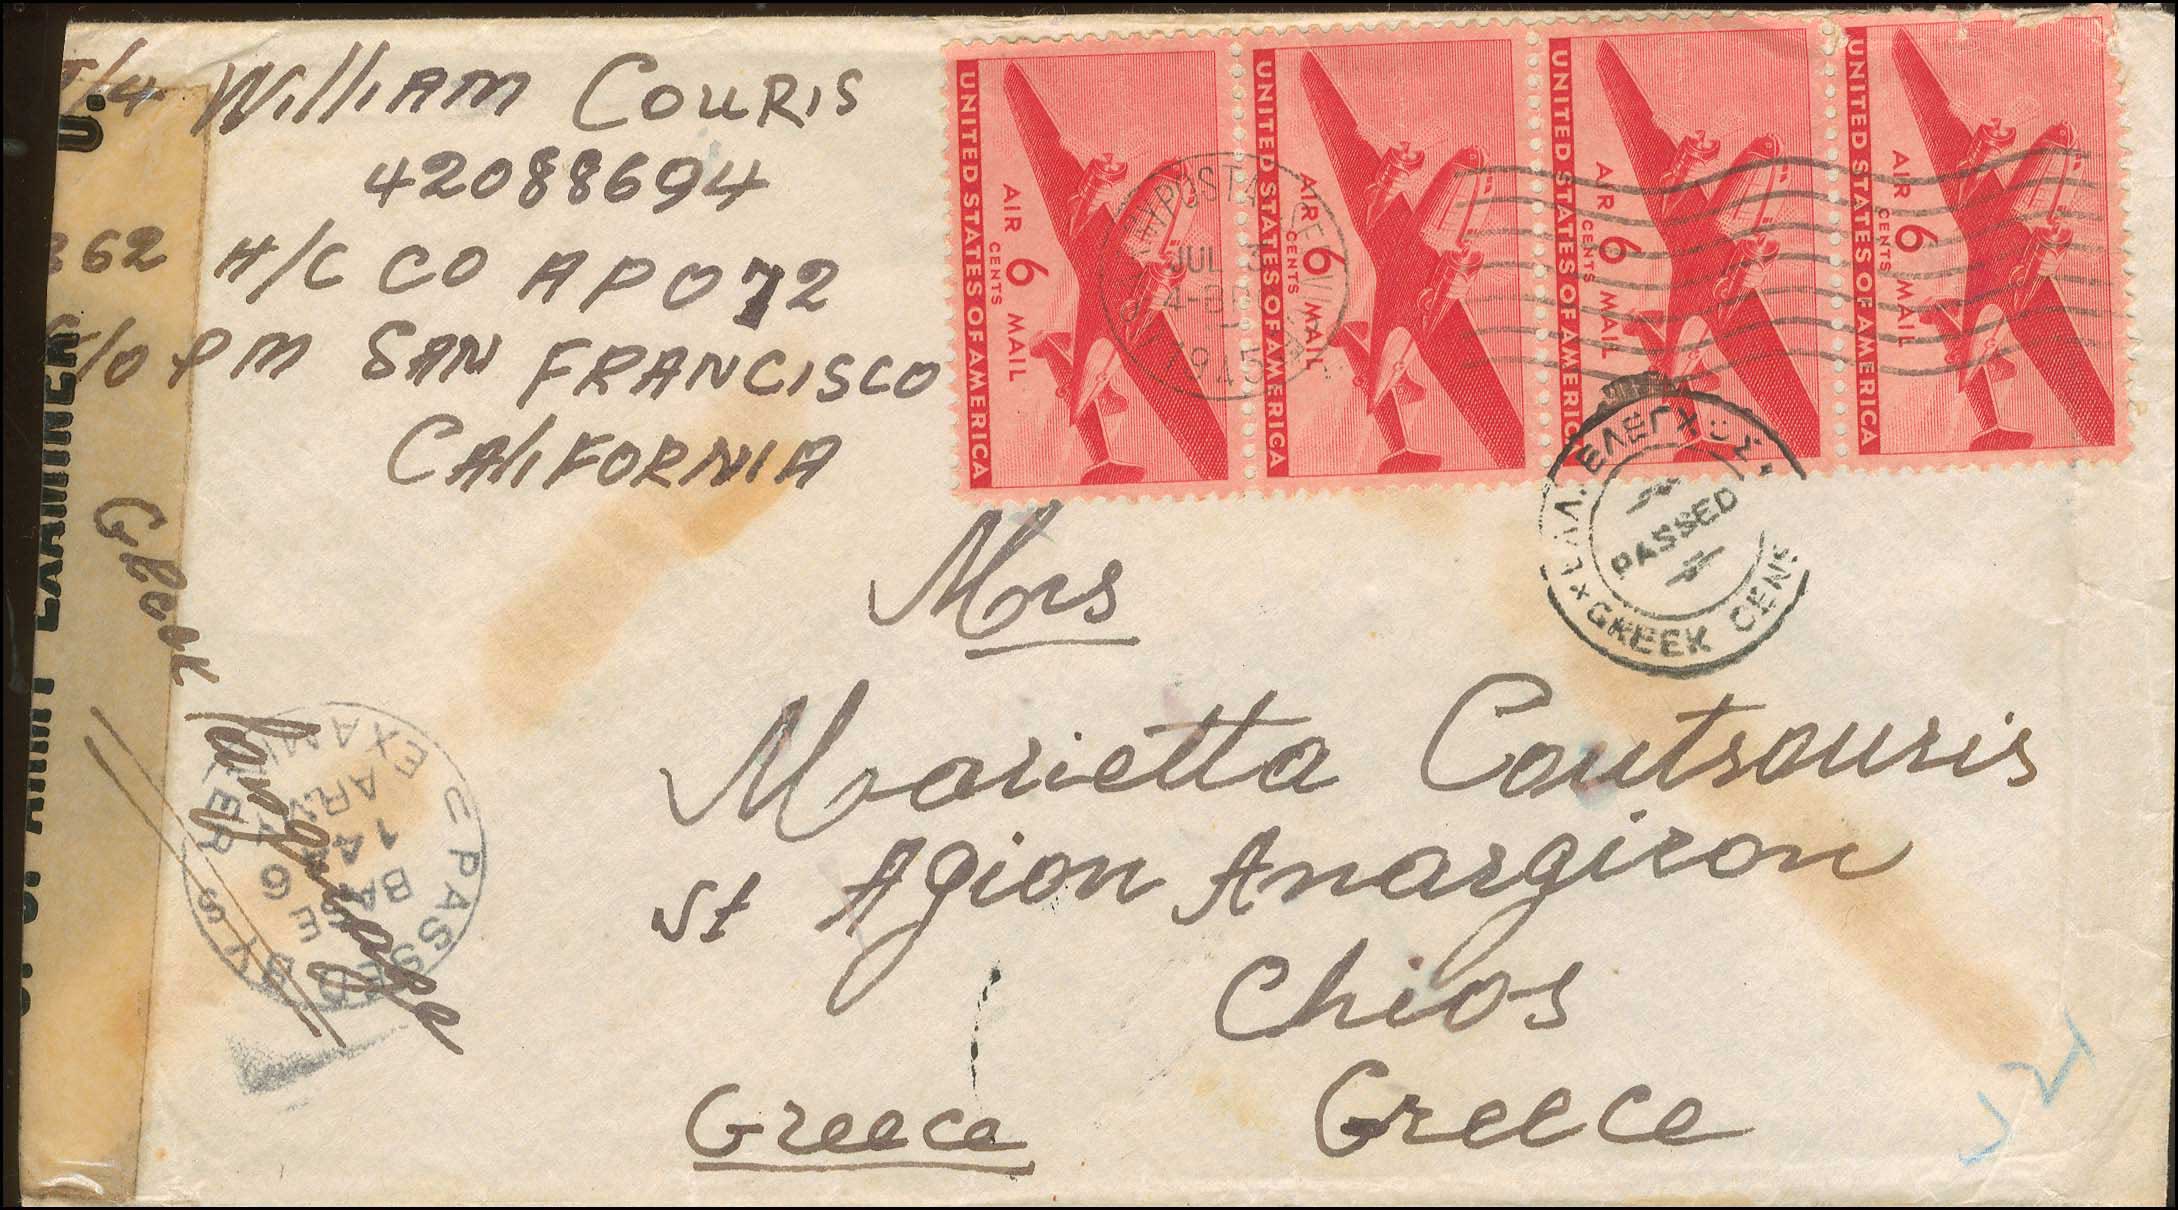 T/4 William Couris
42088694
362 H/C CO APO 72
C/O PM SAN FRANCISCO
CALIFORNIA
UNITED STATES OF AMERICA
AIR 6 CENTS MAIL
UNITED STATES OF AMERICA
AIR 6 CENTS MAIL
UNITED STATES OF AMERICA
AIR 6 CENTS MAIL
UNITED STATES OF AMERICA
AIR 6 CENTS MAIL
JUL 3
1945
PASSED
GREEK CENS
U. S. ARMY EXAMINER
PASSED BY
BASE
ARMY
EXAMINER
Mrs
Marietta Coutsouris
St Agion Anargiron
Chios
Greece
Greece